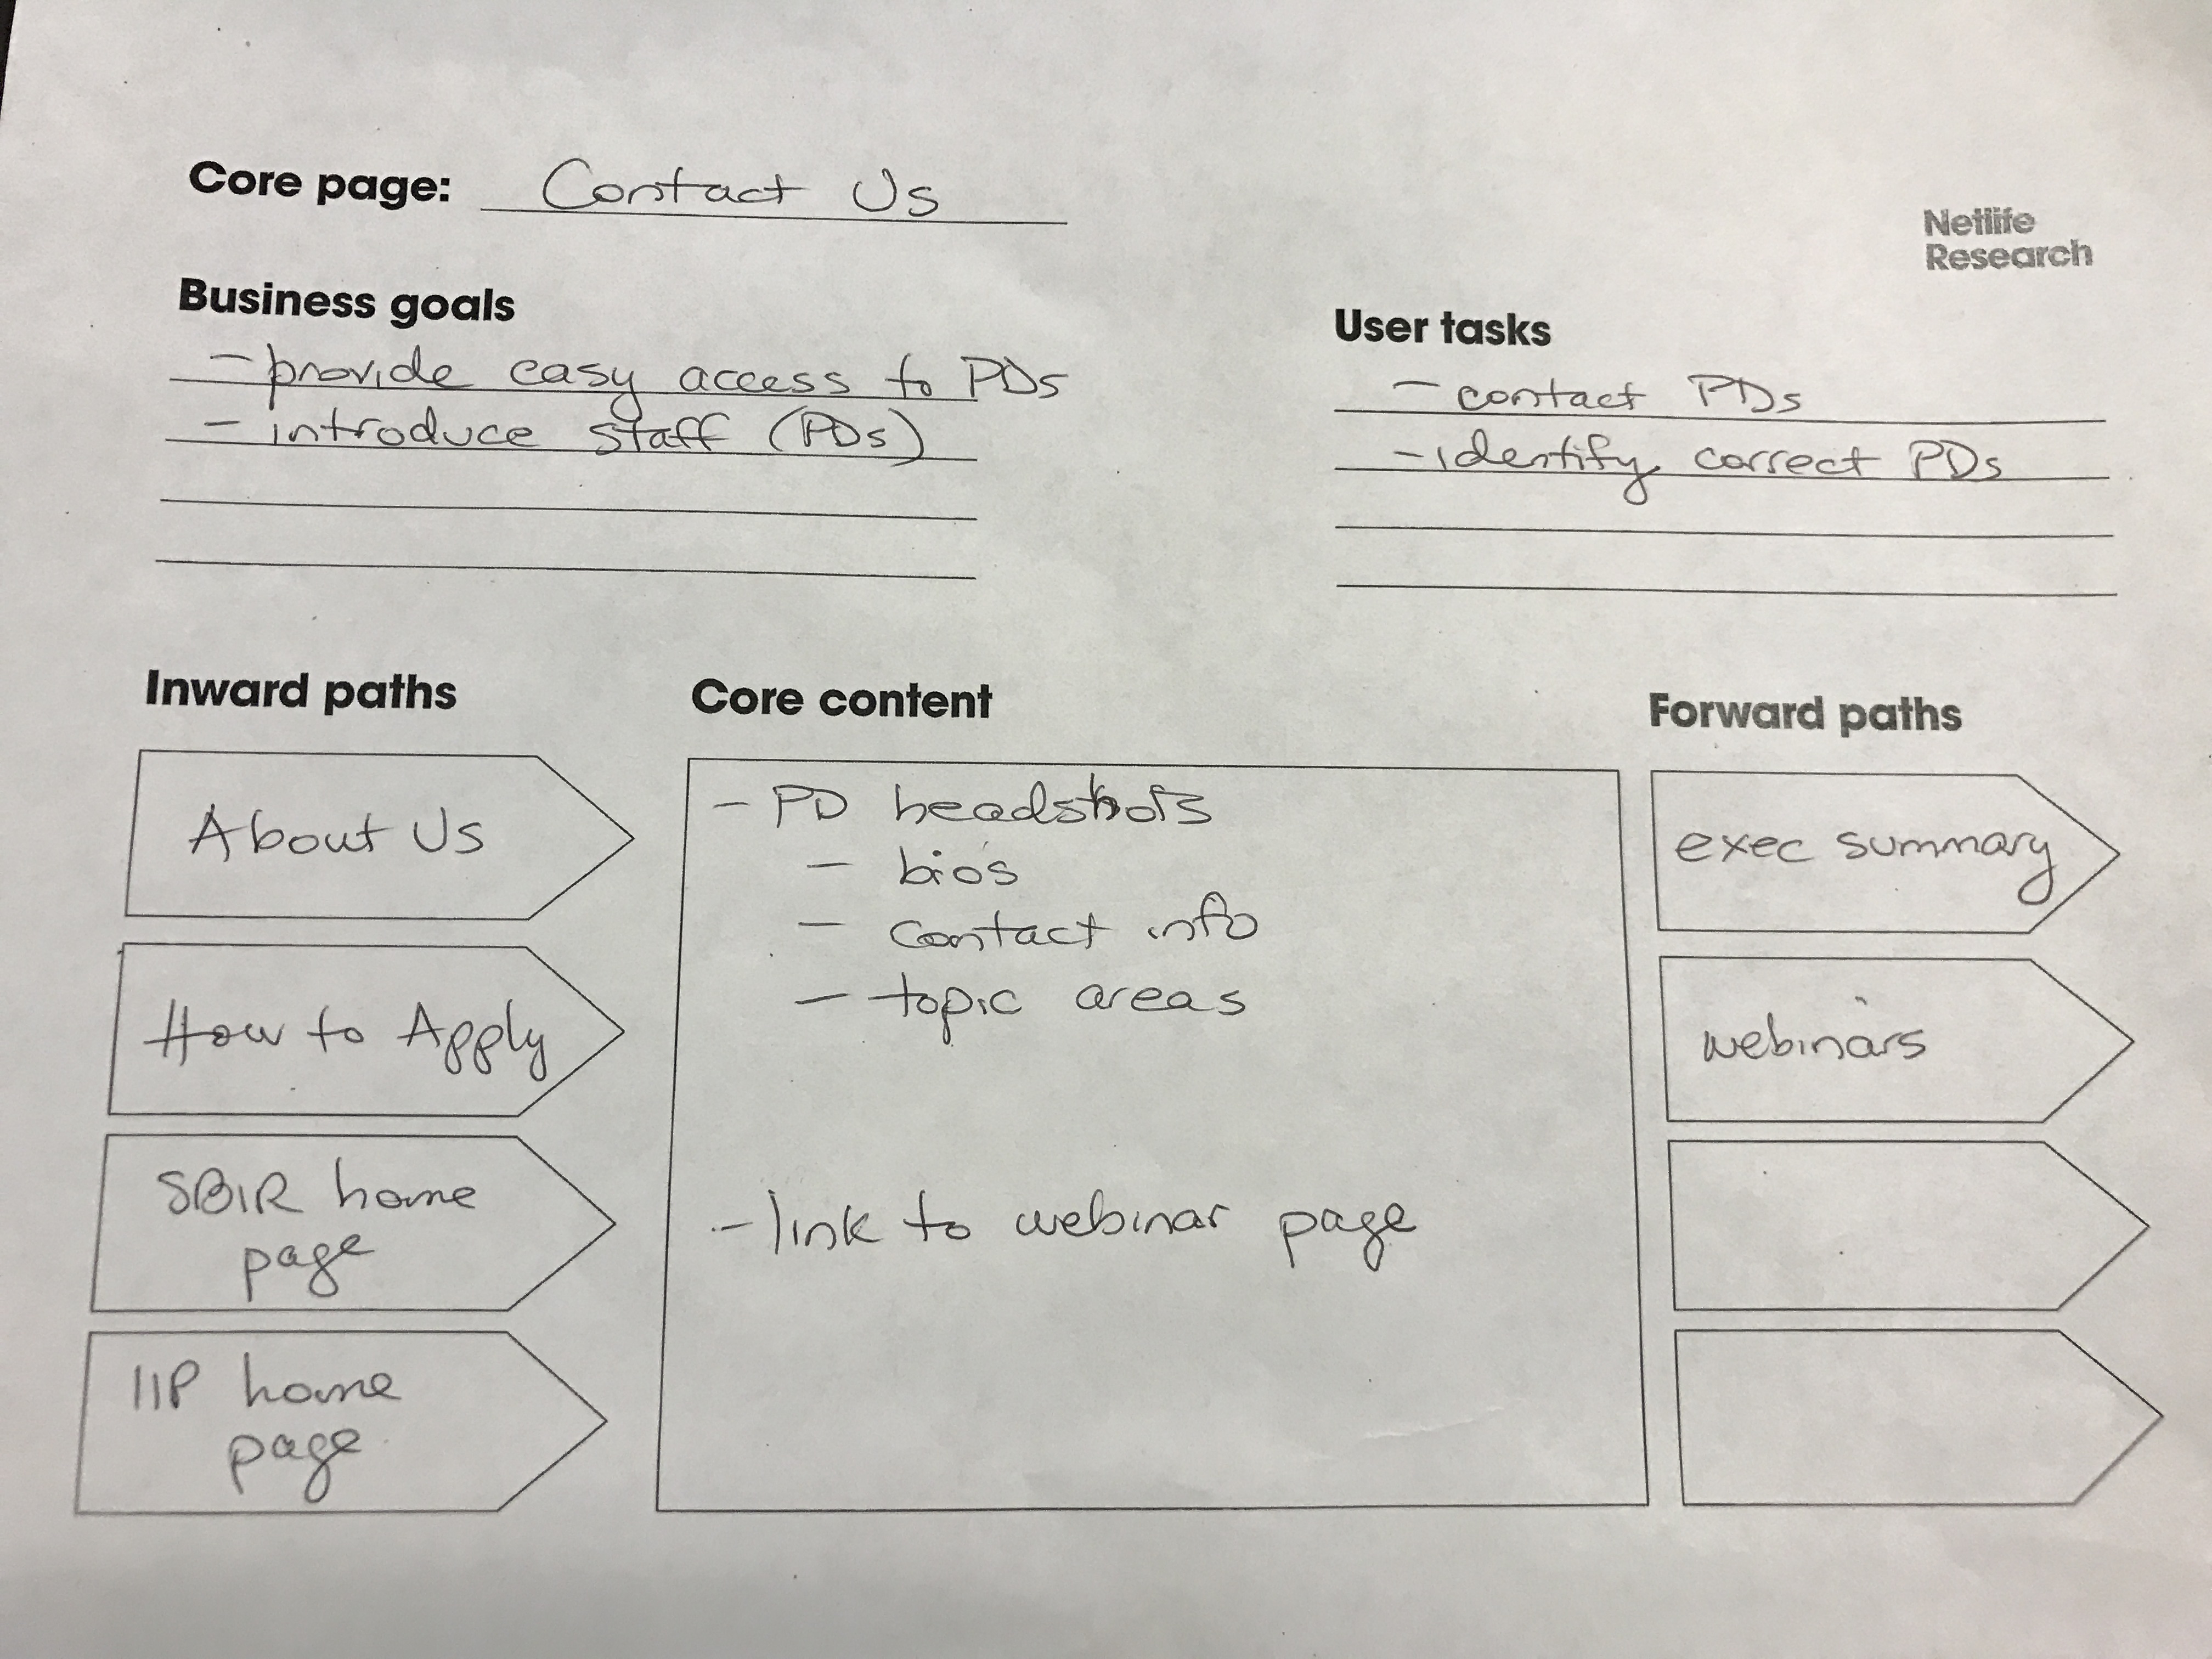 Core page: Contact Us
Netlife
Research
Business goals
- provide easy access to PDs
- introduce staff (PDs)
User tasks
- contact PDs
- identify correct PDs
Inward paths
About Us
How to Apply
SBIR home
page
IIP home
page
Core content
- PD headshots
- bios
- contact info
- topic areas
- link to webinar page
Forward paths
exec summary
webinars